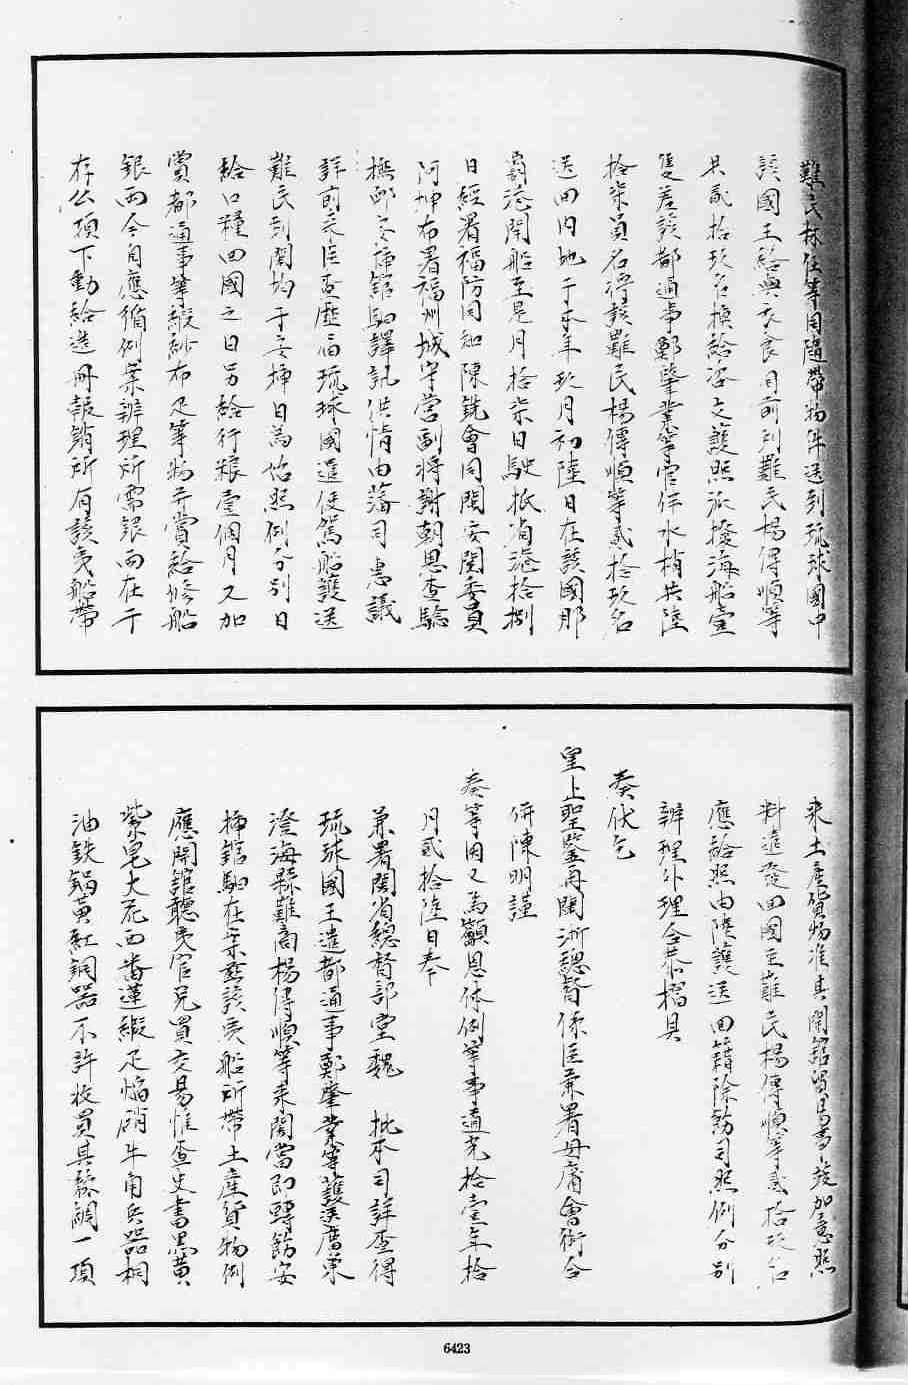 難民林任等同隨帶物件送到琉球國中
該國王給與衣食同前到難民楊得順等
共貳拾玖名換給咨文護照派撥海船壹
隻差該都通事鄭肇業等官伴水梢共陸
拾柒員名將該難民楊得順等貳拾玖名
送回內地于本年玖月初陸日在該國那
霸港開船至是月拾柒日駛抵浦港拾捌
日經署福防同知陳銑會同閩安關委員
阿坤布署福州城守營副將謝朝恩查驗
撫卹安插館驛譯訊供情由藩司惠議
詳前來臣查歷屆琉球國遣使駕船護送
難民到閩均于安插日為始照例分別日
給口糧回國之日另給行粮壹個月又加
賞都通事等緞紗布疋等物并賞給修船
銀兩今自應循例葉辦理所需銀兩在于
存公項下動給造冊報銷所有該夷船帶
來土產貨物准其開館貿易事竣加意照
料遣發回國至難民楊得順等貳拾玖名
應給照由陸護送回籍除飭司照例分別
辦理外理合恭摺具
奏伏乞
皇上聖鑒再閩浙總督係臣兼署毋庸會銜合
併陳明謹
奏等因又為籲恩体例等事道光拾壹年拾
月貳拾陸日奉
兼署閩省總督部堂魏 批本司詳查得
琉球國王遣都通事鄭肇業等護送廣東
澄海縣難商楊得順等來閩當即轉飭安
插館驛在案茲該夷船所帶土產貨物例
應開館聽夷官兄買交易惟查史書黑黃
紫皂大花西番蓮緞疋焰硝牛角兵器桐
油鉄鍋黃紅銅器不許收買其絲綢一項
6423